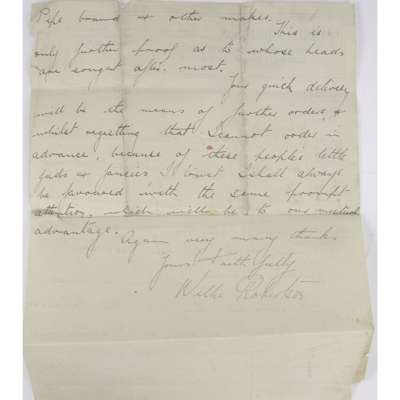 Pipe brand & other makes.
This is
only further proof as to whose heads
are sought after most.
Your quick delivery
will be the means of further orders, &
whilst regretting that I cannot order in
advance, because of these people's little
fads & fancies I trust I shall always
be favoured with the same prompt
attention, which will be to our mutual
advantage.
Again very many thanks
Yours Faithfully
Willie Robertson